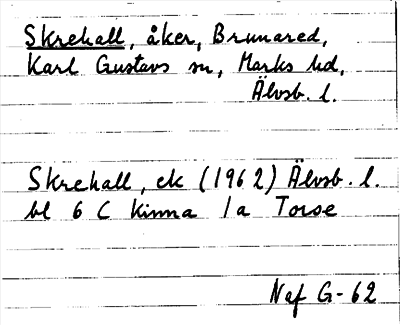 Skrehall, åker, Brunared,
Karl Gustavs sn, Marks hd,
Älvsb. l.
Skrehall, ek (1962) Älvsb. l.
bl 6 C Kinna /a Torse
Naf G-62